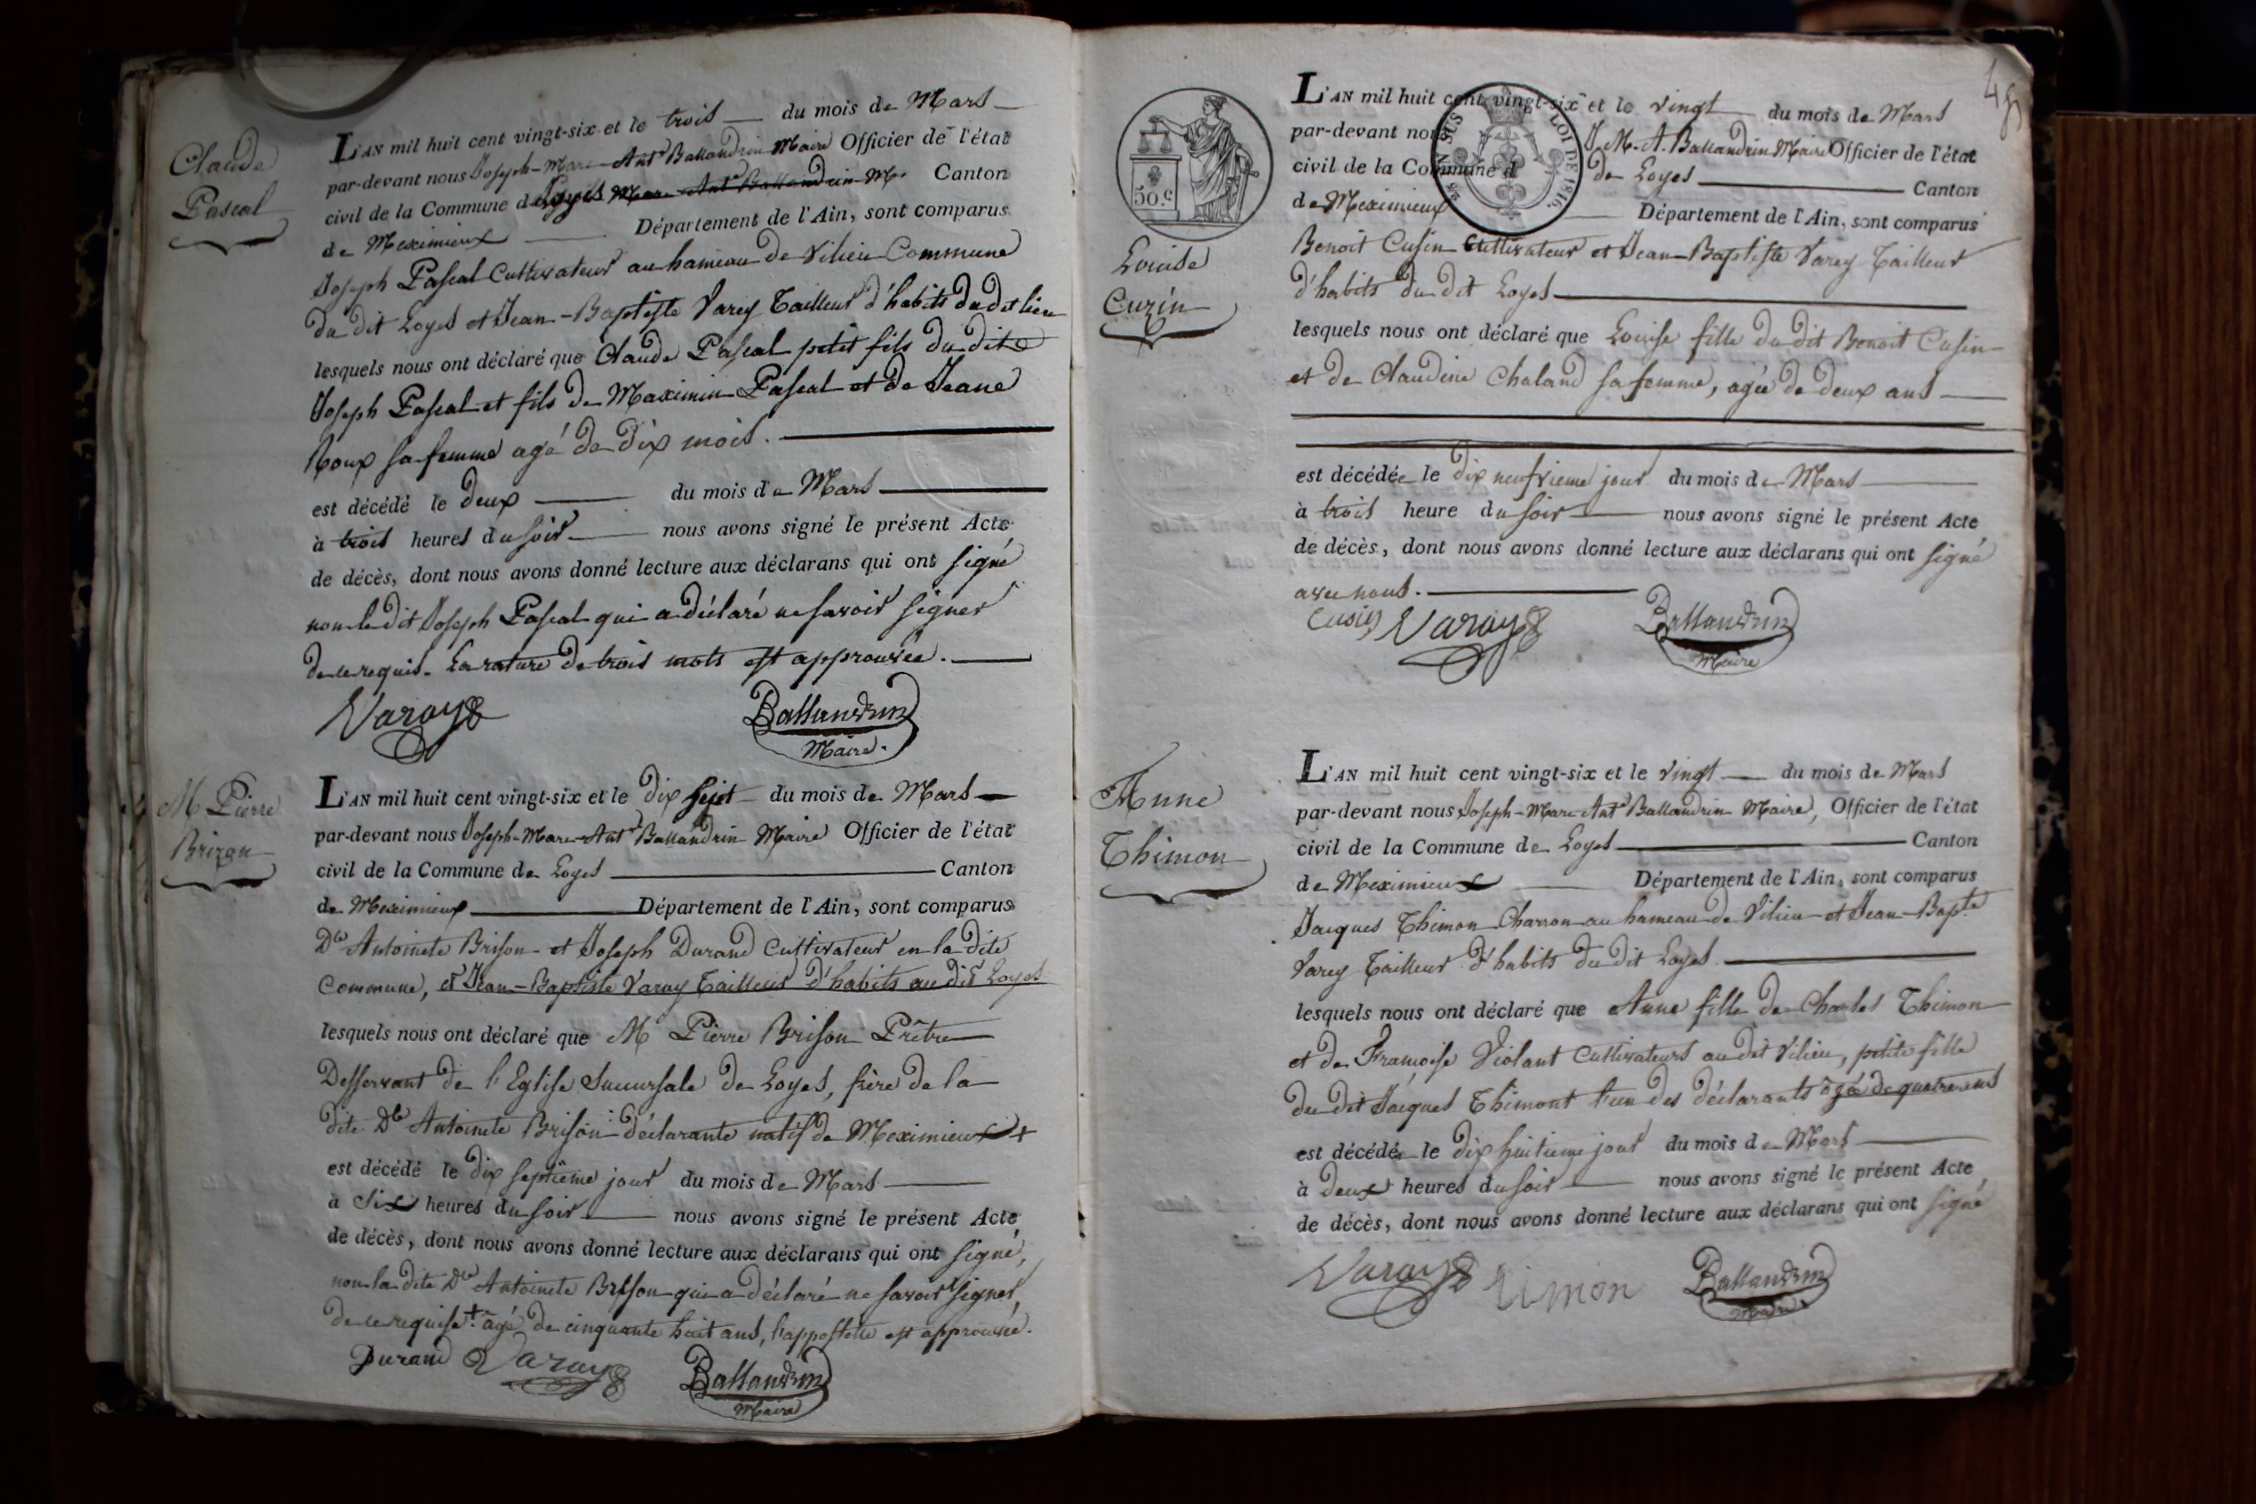 Claude
Pascal
L'AN mil huit cent vingt-six et le trois du mois de Mars
par-devant nous Joseph-Marc-Ant.e Ballandrin Maire Officier de l'état
civil de la Commune de Loyes Marc-Ant.e Ballandrin M. Canton
de Meximieux Département de l'Ain, sont comparus
Joseph Pascal Cultivateur au hameau de Vilieu Commune
du dit Loyes et Jean-Baptiste Varey Tailleur d'habits du dit lieu
lesquels nous ont déclaré que Claude Pascal petit fils du dit
Joseph Pascal et fils de Maximin Pascal et de Jeane
Roux sa femme agé de dix mois.
est décédé le deux du mois de Mars
à trois heures du soir nous avons signé le présent Acte
de décès, dont nous avons donné lecture aux déclarans qui ont signé
non le dit Joseph Pascal qui a déclaré ne savoir signer
de ce requis. La rature de trois mots est approuvée.
Varay Ballandrin
Maire.
M Pierre
Brizon
L'AN mil huit cent vingt-six et le dix sept du mois de Mars
par-devant nous Joseph-Marc-Ant.e Ballandrin Maire Officier de l'état
civil de la Commune de Loyes Canton
de Meximieux Département de l'Ain, sont comparus
D.le Antoinete Brison et Joseph Durand Cultivateur en la dite
Commune, et Jean-Baptiste Varay Tailleur d'habits au dit Loyes
lesquels nous ont déclaré que M Pierre Brison Prêtre
Desservant de l'Eglise Succursale de Loyes, frère de la
dite D.le Antoinete Brison déclarante natif de Meximieux +
est décédé le dix septième jour du mois de Mars
à Six heures du soir nous avons signé le présent Acte
de décès, dont nous avons donné lecture aux déclarans qui ont signé,
non la dite D.le Antoinete Brison qui a déclaré ne savoir signer
de ce requise + âgé de cinquante huit ans, l'appostille est approuvé.
Durand Varay Ballandrin
Maire
50.c
EN SUS LOI DE 1816.
Louise
Cuzin
L'AN mil huit cent vingt-six et le vingt du mois de Mars
par-devant nous J. M. A. Ballandrin Maire Officier de l'état
civil de la Commune de Loyes Canton
de Meximieux Département de l'Ain, sont comparus
Benoit Cusin Cultivateur et Jean-Baptiste Varey Tailleur
d'habits du dit Loyes
lesquels nous ont déclaré que Louise fille du dit Benoit Cusin
et de Claudine Chaland sa femme, agée de deux ans
est décédée le dix neufvieme jour du mois de Mars
à trois heure du soir nous avons signé le présent Acte
de décès, dont nous avons donné lecture aux déclarans qui ont signé
avec nous.
Cusin Varay Ballandrin
Maire
Anne
Thimon
L'AN mil huit cent vingt-six et le vingt du mois de Mars
par-devant nous Joseph-Marc-Ant.e Ballandrin Maire, Officier de l'état
civil de la Commune de Loyes Canton
de Meximieux Département de l'Ain, sont comparus
Jacques Thimon Charron au hameau de Vilieu et Jean-Bap.te
Varey Tailleur d'habits du dit Loyes.
lesquels nous ont déclaré que Anne fille de Charles Thimon
et de Françoise Violant Cultivateurs au dit Vilieu, petite fille
du dit Jacques Thimont l'un des déclarants âgée de quatre ans
est décédée le dix huitieme jour du mois de Mars
à deux heures du soir nous avons signé le présent Acte
de décès, dont nous avons donné lecture aux déclarans qui ont signé
Varay Timon Ballandrin
Maire